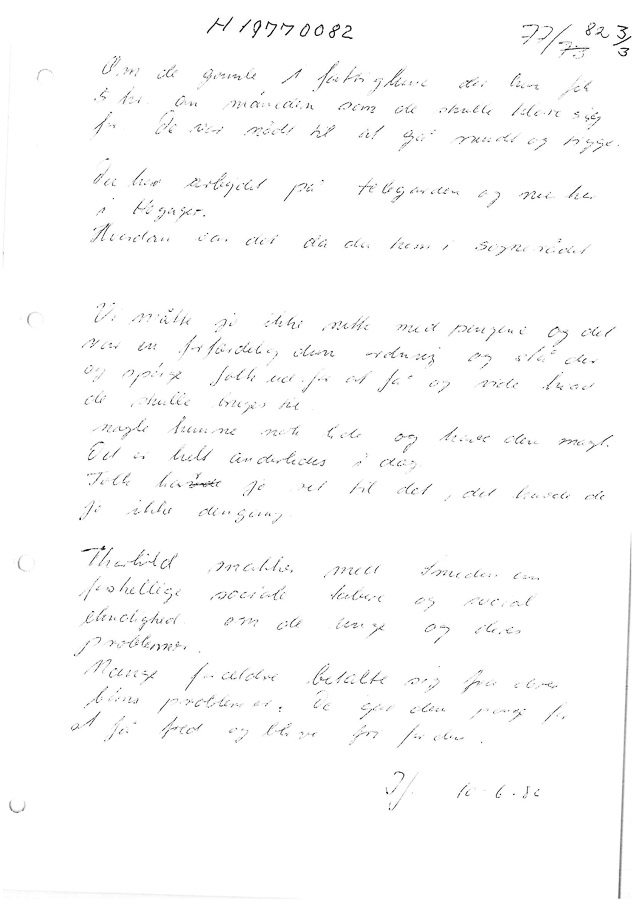 H 19770082
77/73 82 3/3
Om de gamle i fattighuse der kun fik
5 kr. om måneden som de skulle klare sig
for De var nødt til at gå rundt og tigge.
Du har arbejdet på og nu her
i Hogager.
Hvordan var det da du kom i sognerådet
Vi måtte jo ikke rutte med pengene og det
var en forfærdelig dum ordning og stå der
og spørge folk ud for at få og vide hvad
de skulle bruges til.
nogle kunne nok lide og have den magt.
Det er helt anderledes i dag
Folk har jo ret til det, det havde de
jo ikke dengang.
Thorkild snakker med Smeden om
forskellige sociale og social
elendighed. om de unge og deres
problemer.
Mange forældre betalte sig fra deres
børns problemer. De gav dem penge for
at få fred og blive fri for dem.
10-6-82